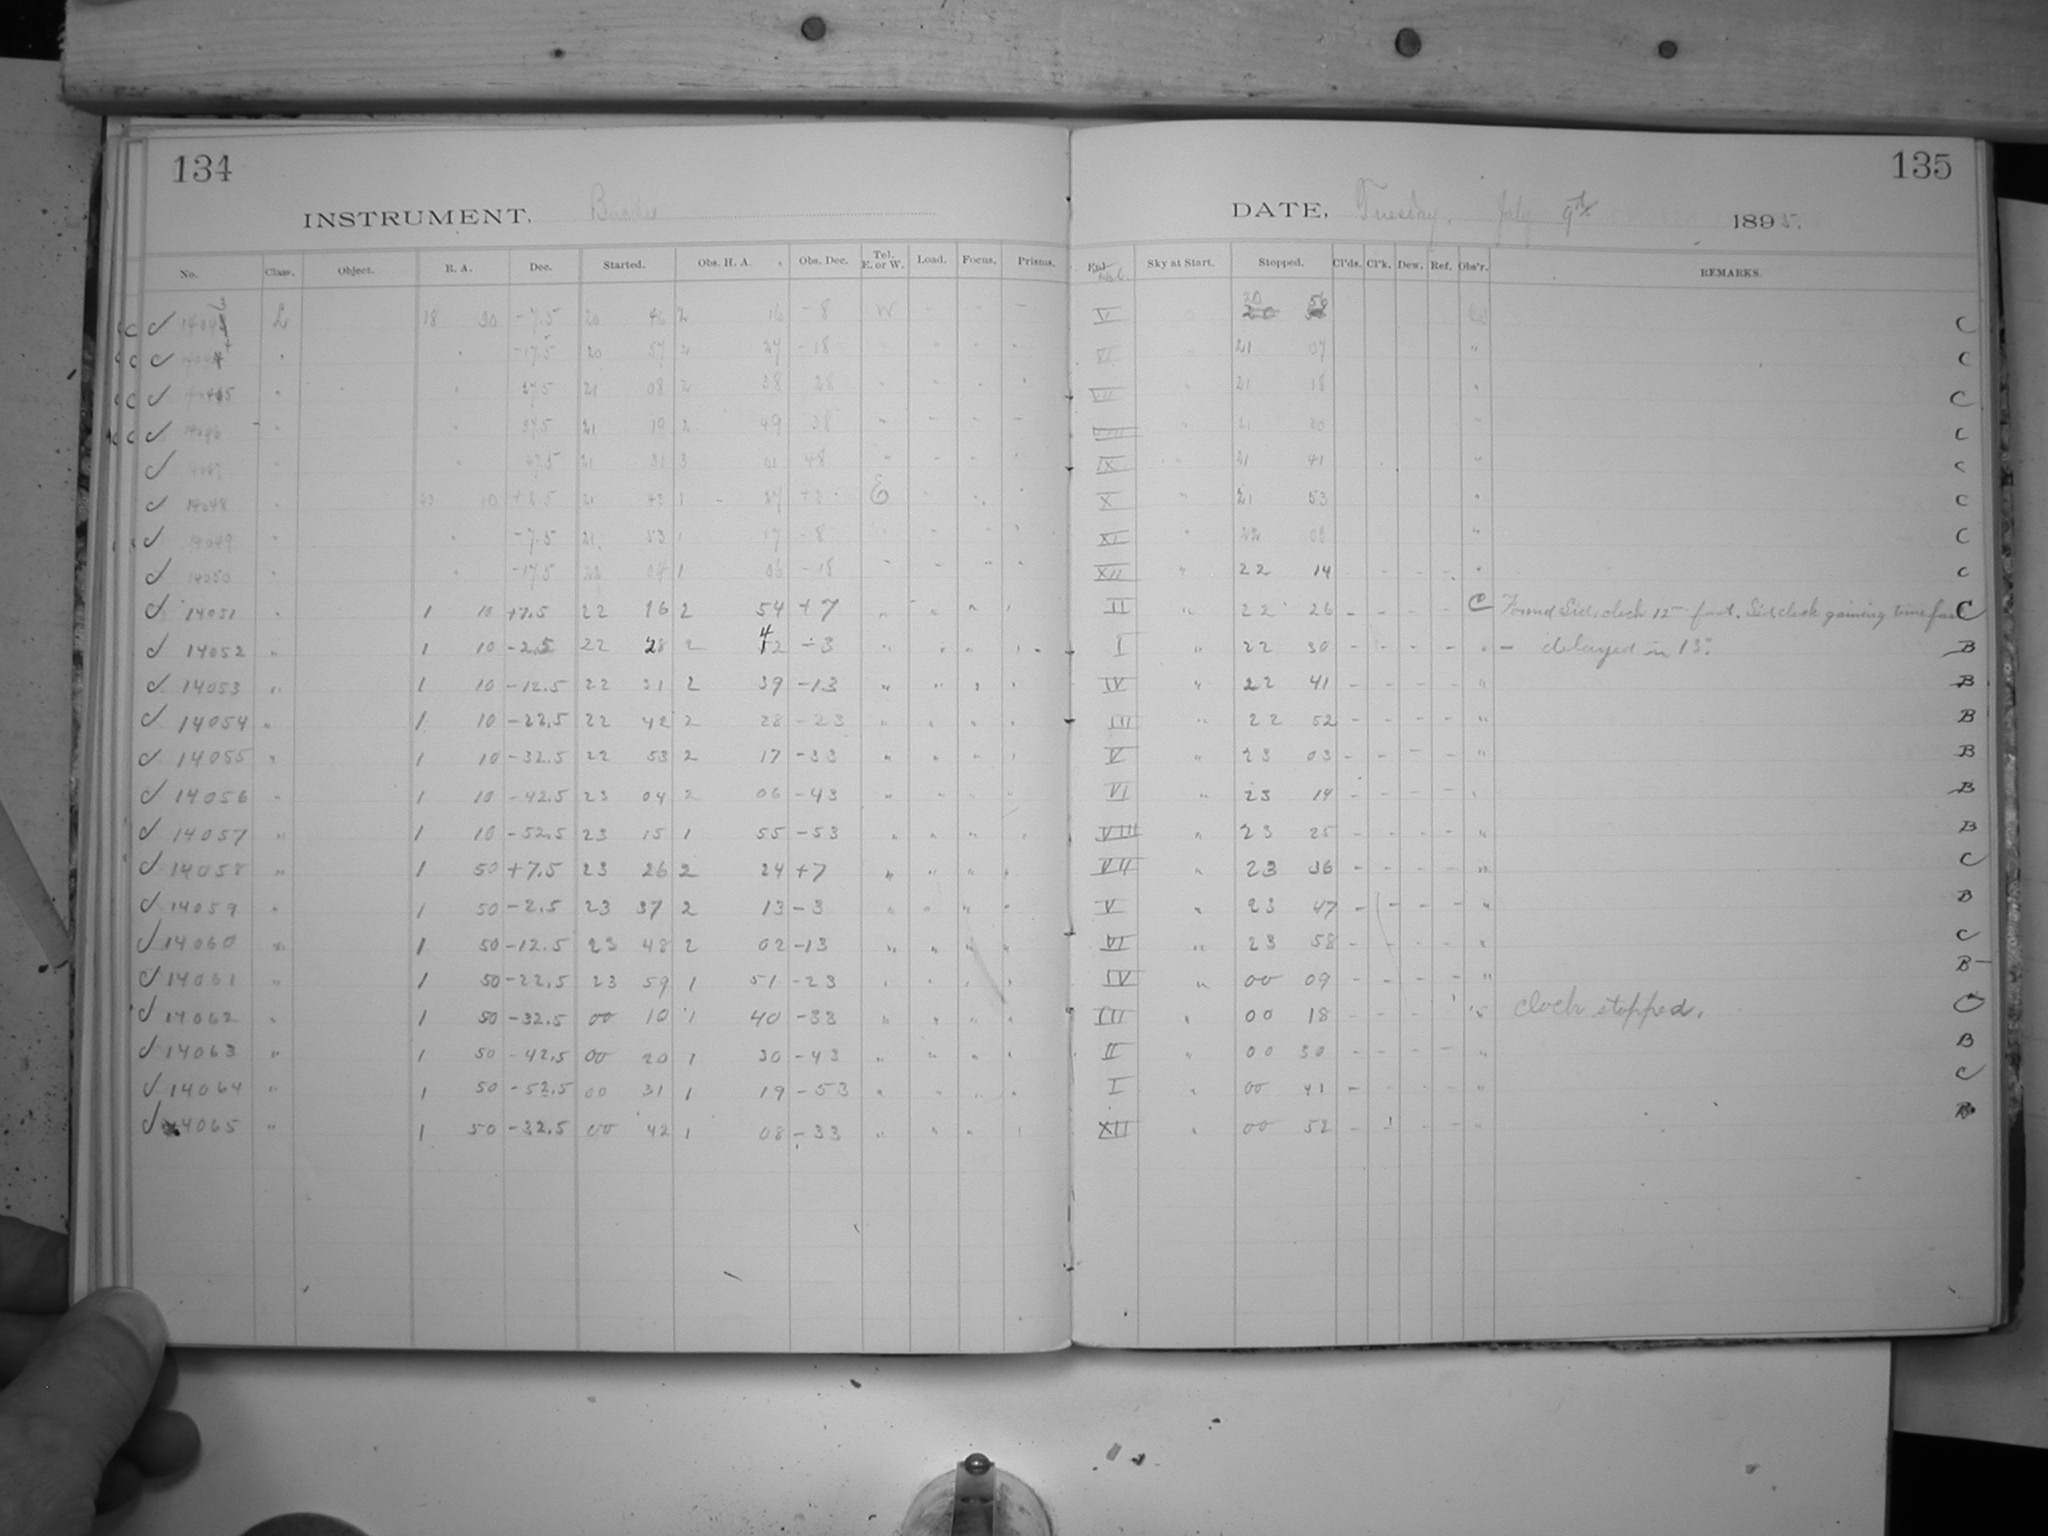 134
135
INSTRUMENT. Bache
DATE, Tuesday, July 9th 1895.
No. Class. Object. R. A. Dec. Started. Obs. H. A. Obs. Dec. Tel. E. or W. Load. Focus. Prisms. Sky at Start. Stopped. Cl'ds. Cl'k. Dew. Ref. Obs'r. REMARKS.
L 18 30 -7.5 20 46 2 16 -8 W - - - VI 20 56 C
" " -17.5 20 57 2 27 -18 " - " - VI " 21 07 " C
" " 27.5 21 08 2 38 28 " " " " VII " 21 18 " C
14046 " " 37.5 21 19 2 49 38 " - - - VIII " 21 30 " C
14047 " " 47.5 21 31 3 01 48 " - - ' IX " 21 41 " C
14048 " 23 10 21 42 1 - 27 E " " " X " 21 53 " C
14049 " " -7.5 21 53 1 17 -8 " " " ' XI " 22 03 " C
14050 " " -17.5 22 04 1 06 -18 " - " " XII " 22 14 - - - - " C
14051 " 1 10 +7.5 22 16 2 54 +7 " " " " II " 22 26 - - - - C Found Sid. clock 12m fast. Sid clock gaining time fast C
14052 " 1 10 -2.5 22 28 2 42 -3 " " " ' - I " 22 30 - - - - " - delayed in 13m. B
14053 " 1 10 -12.5 22 31 2 39 -13 " " " ' IV " 22 41 - - - - " B
14054 " 1 10 -22.5 22 42 2 28 -23 " " " ' III " 22 52 - - - - " B
14055 " 1 10 -32.5 22 53 2 17 -33 " " " ' V " 23 03 - - - - " B
14056 " 1 10 -42.5 23 04 2 06 -43 " " " " VI " 23 14 - - - - " B
14057 " 1 10 -52.5 23 15 1 55 -53 " " " " VIII " 23 25 - - - - " B
14058 " 1 50 +7.5 23 26 2 24 +7 " " " " VII " 23 36 - - - - " C
14059 " 1 50 -2.5 23 37 2 13 -3 " " " " V " 23 47 - - - - " B
14060 " 1 50 -12.5 23 48 2 02 -13 " " " " VI " 23 58 - - - - " C
14061 " 1 50 -22.5 23 59 1 51 -23 " " " ' IV " 00 09 - - - - " B
14062 " 1 50 -32.5 00 10 1 40 -33 " " " " III " 00 18 - - - ' " clock stopped. C
14063 " 1 50 -42.5 00 20 1 30 -43 " " " " II " 00 30 - - - - " B
14064 " 1 50 -52.5 00 31 1 19 -53 " " " " I " 00 41 - - - - " C
14065 " 1 50 -32.5 00 42 1 08 -33 " " " ' XII " 00 52 - - - - " B